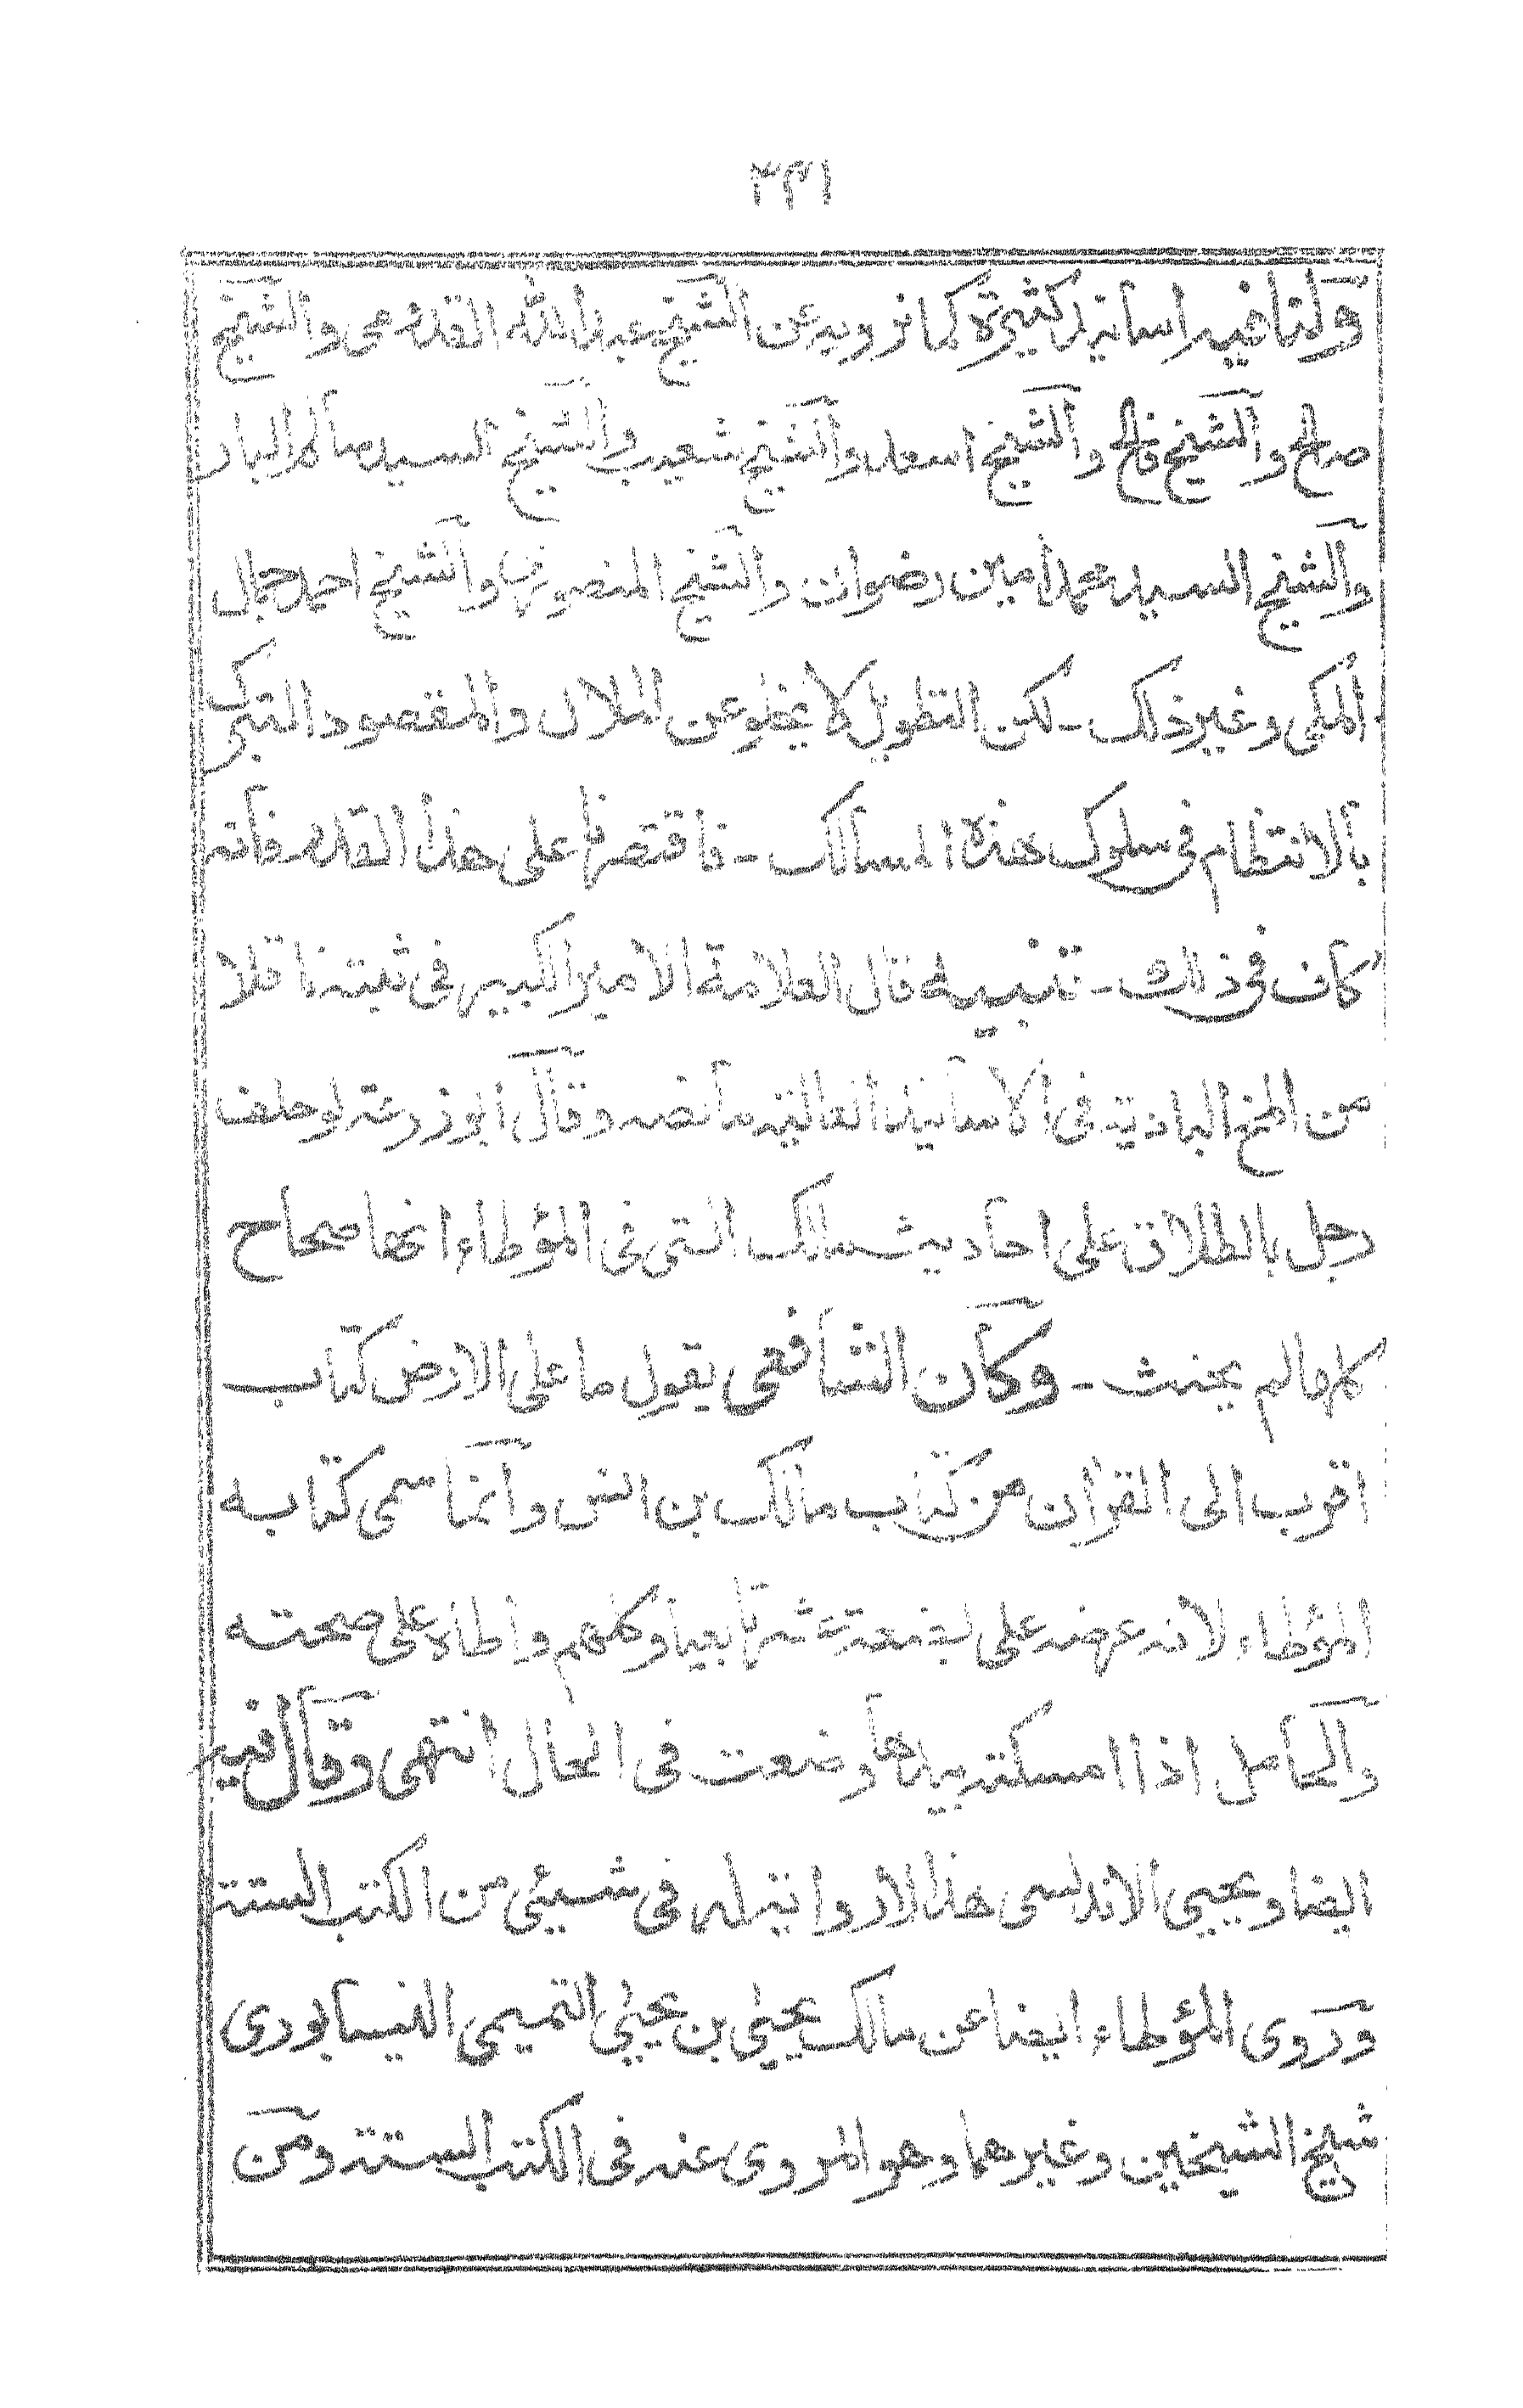 ٣٣١
ولنا فيه اسانيد كثيرة كما نرويه عن الشيخ عبد الله القدومى والشيخ
صالح والشيخ فالح والشيخ اسعد والشيخ شعيب والشيخ السيد سالم البار
والشيخ السيد محمد امين رضوان والشيخ المنصورى والشيخ احمد جمال
المكى وغير ذلك - لكن التطويل لا يخلو عن الملال والمقصود التبرك
بالانتظام فى سلوك هذه المسالك - فاقتصرنا على هذا القدر فانه
كاف فى ذلك - تنبيه قال العلامة الامير الكبير فى ثبته ناقلا
من المنح البادية فى الاسانيد العالية ما نصه وقال ابو زرعة لو حلف
رجل بالطلاق على احاديث مالك التى فى المؤطاء انها صحاح
كلها لم يحنث - وكان الشافعى يقول ما على الارض كتاب
اقرب الى القرآن من كتاب مالك بن انس وانما سمى كتابه
المؤطاء لانه عرضه على بضعة عشر تابعيا وكلهم واطاه على صحته
والحامل اذا امسكته بيدها وضعت فى الحال انتهى وقال فيه
ايضا ويحيى الاندلسى هذا لا رواية له فى شيئى من الكتب الستة
وروى المؤطاء ايضا عن مالك يحيى بن يحيى التميمى النيسابورى
شيخ الشيخين وغيرهما وهو المروى عنه فى الكتب الستة ومن